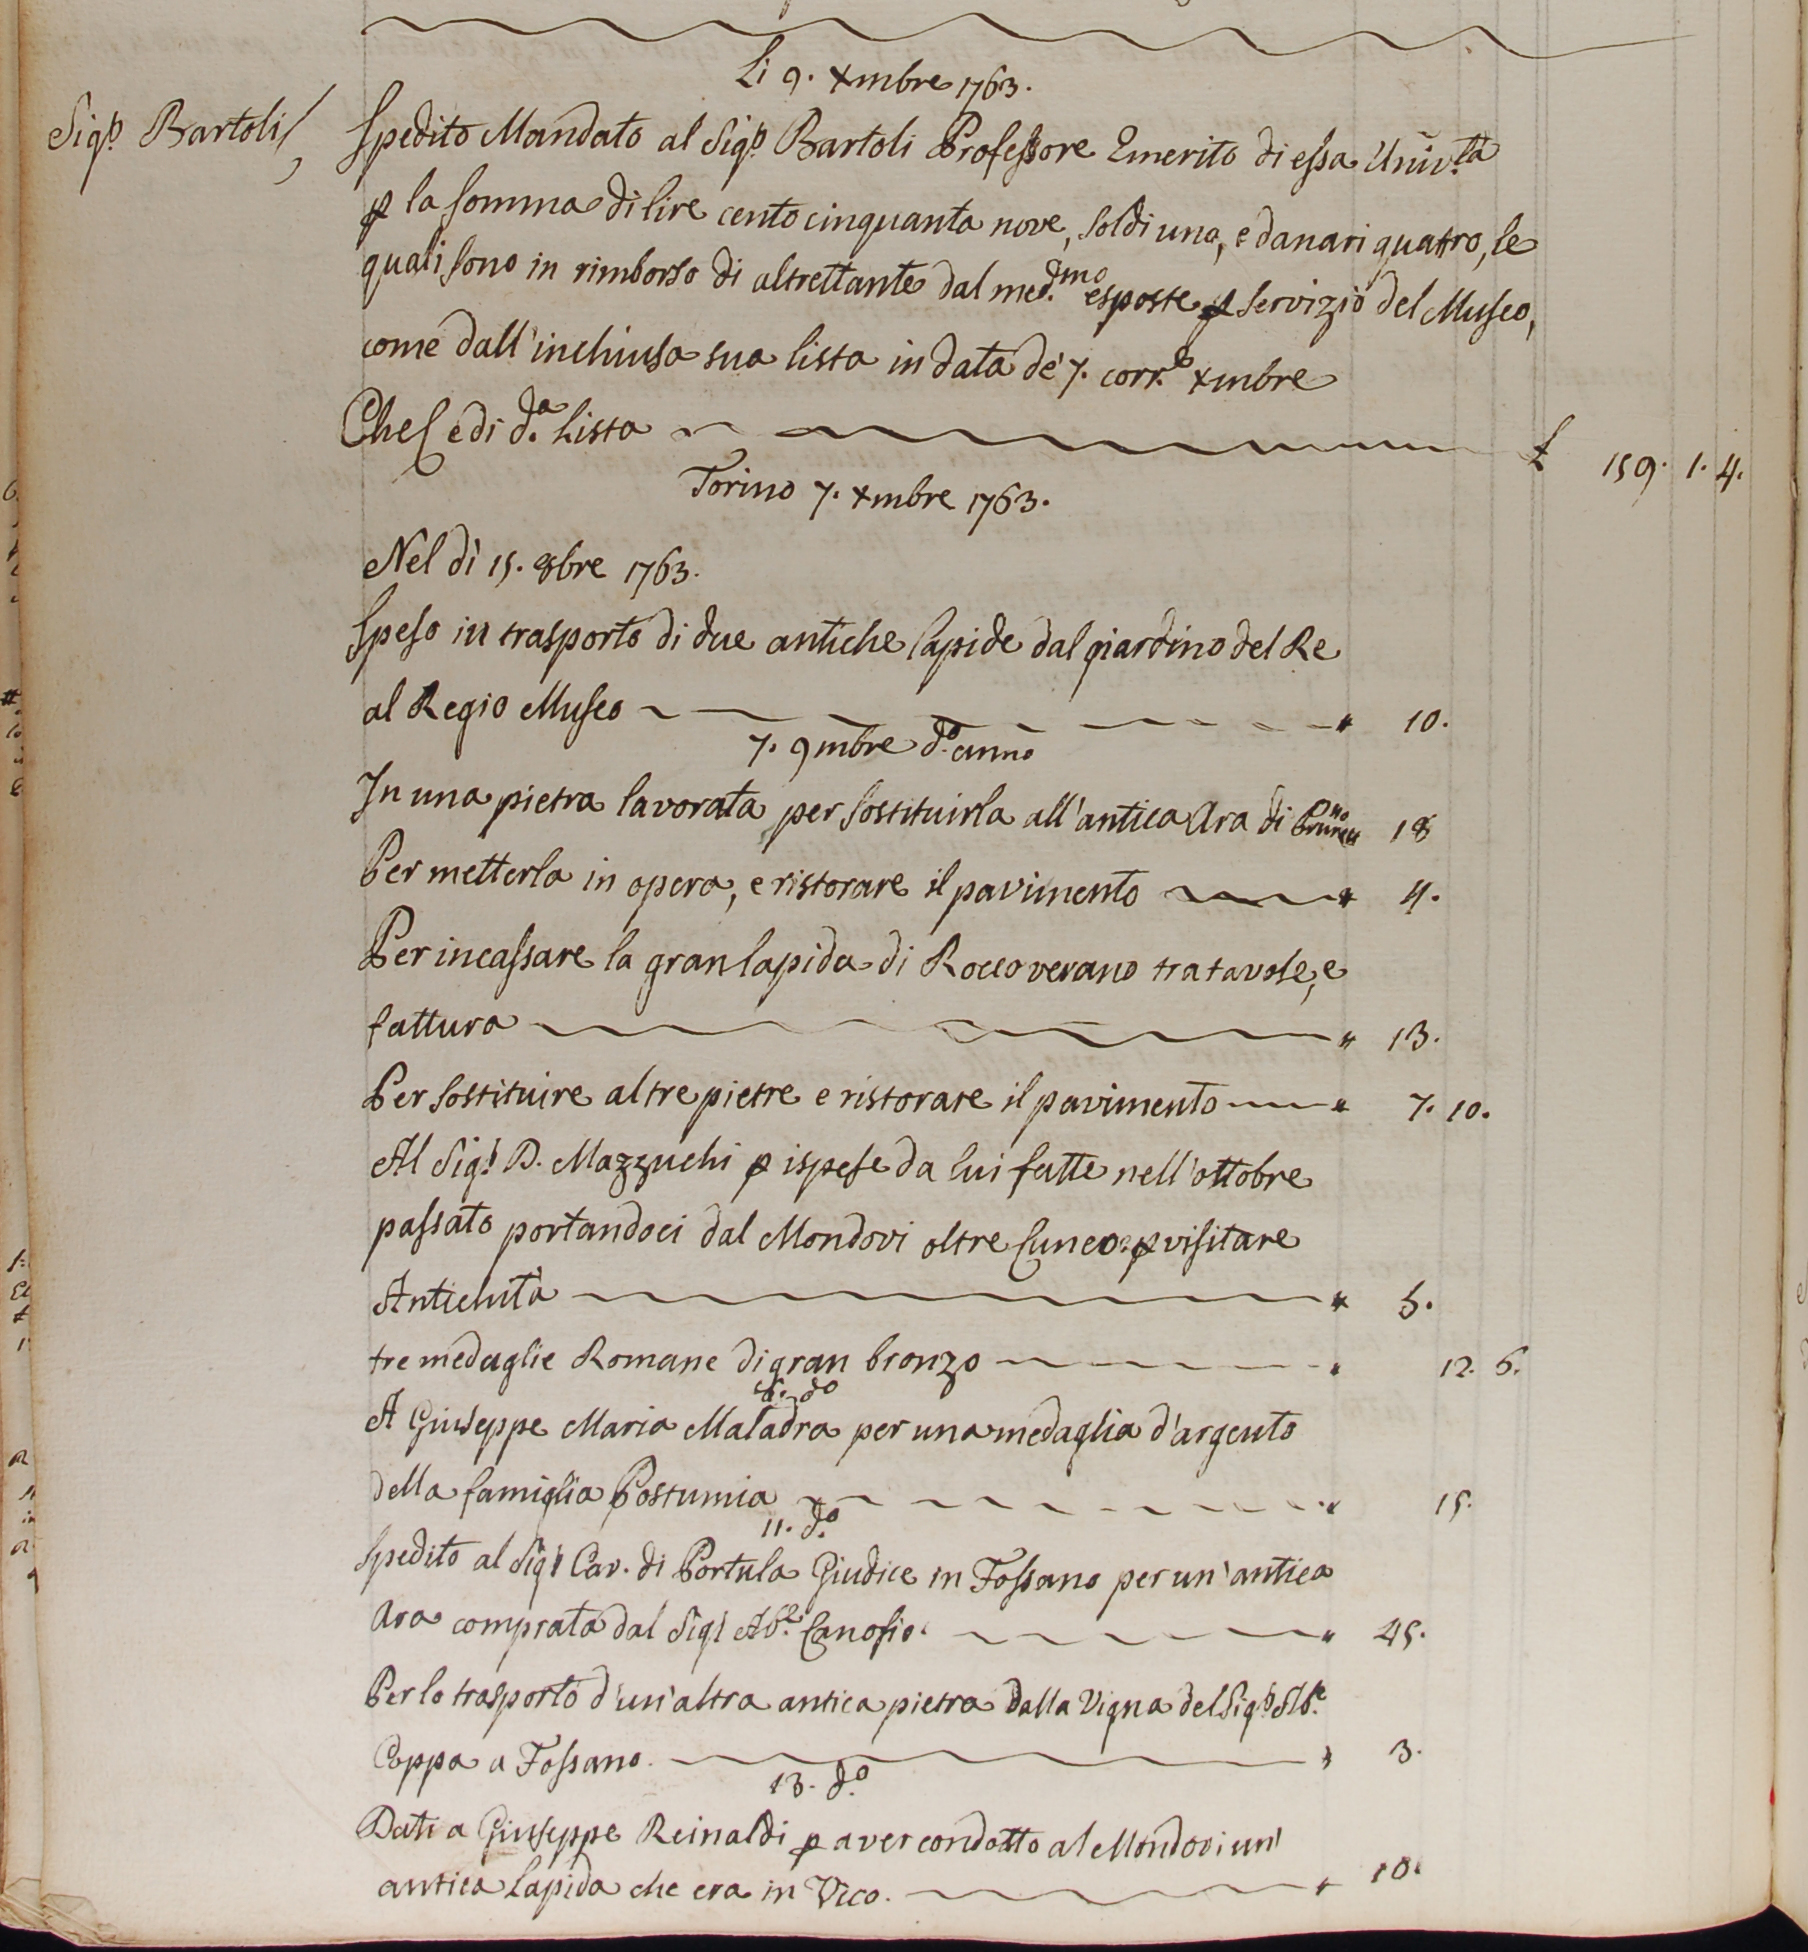 Li 9. Xmbre 1763.
Sigr. Bartoli
Spedito Mandato al Sigr. Bartoli Professore Emerito di essa Univ.tà
p la somma di lire cento cinquanta nove, soldi uno, e danari quatro, le
quali sono in rimborso di altrettante dal med.dmo esposte p servizio del Museo,
come dall'inchiusa sua lista in data de' 7. corr.e Xmbre
Che è di d.a Lista £ 159. 1. 4.
Torino 7. Xmbre 1763.
Nel dì 15. 8bre 1763.
Speso in trasporto di due antiche lapide dal giardino del Re
al Regio Museo " 10.
7. 9mbre d.o anno
In una pietra lavorata per sostituirla all'antica Ara di 18
Per metterla in opera, e ristorare il pavimento " 4.
Per incassare la gran lapida di Roccoverano tra tavole, e
fattura " 13.
Per sostituire altre pietre e ristorare il pavimento " 7. 10.
Al Sigr. D. Mazzuchi p ispese da lui fatte nell'ottobre
passato portandoci dal Mondovi oltre Cuneo p visitare
Antichità " 5.
tre medaglie Romane di gran bronzo " 12. 6.
d.o
A Giuseppe Maria Maladra per una medaglia d'argento
della famiglia Postumia " 15.
11. d.o
Spedito al Sigr Cav. di Portula Giudice in Fossano per un'antica
Ara comprata dal Sigr Ab.e Canofio. " 45.
Per lo trasporto d'un'altra antica pietra dalla Vigna del Sigr. Ab.e
Coppa a Fossano. " 3.
13. d.o
Dati a Giuseppe Reinaldi p aver condotto al Mondovi un'
antica Lapida che era in Vico. " 10.